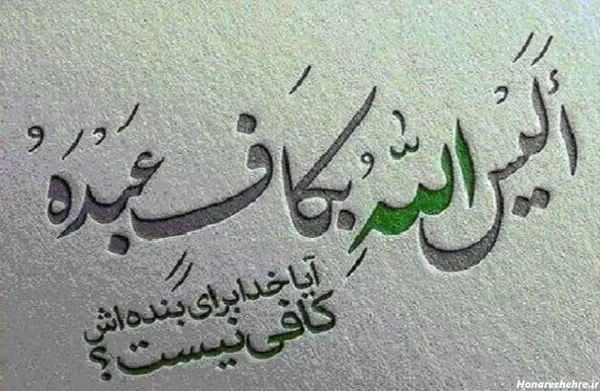 أَلَيْسَ اللَّهُ بِكَافٍ عَبْدَهُ
آیا خدا برای بنده‌اش
کافی نیست؟
Honarechehre.ir